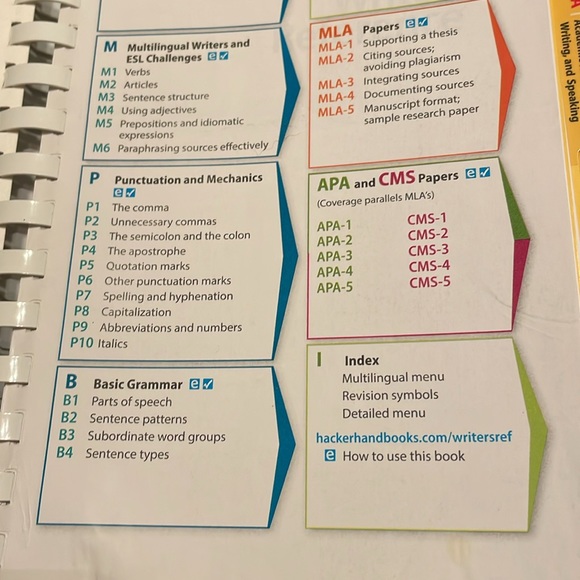 M Multilingual Writers and
ESL Challenges e
M1 Verbs
M2 Articles
M3 Sentence structure
M4 Using adjectives
M5 Prepositions and idiomatic
expressions
M6 Paraphrasing sources effectively
P Punctuation and Mechanics
e
P1 The comma
P2 Unnecessary commas
P3 The semicolon and the colon
P4 The apostrophe
P5 Quotation marks
P6 Other punctuation marks
P7 Spelling and hyphenation
P8 Capitalization
P9 Abbreviations and numbers
P10 Italics
B Basic Grammar e
B1 Parts of speech
B2 Sentence patterns
B3 Subordinate word groups
B4 Sentence types
MLA Papers e
MLA-1 Supporting a thesis
MLA-2 Citing sources;
avoiding plagiarism
MLA-3 Integrating sources
MLA-4 Documenting sources
MLA-5 Manuscript format;
sample research paper
APA and CMS Papers e
(Coverage parallels MLA's)
APA-1 CMS-1
APA-2 CMS-2
APA-3 CMS-3
APA-4 CMS-4
APA-5 CMS-5
I Index
Multilingual menu
Revision symbols
Detailed menu
hackerhandbooks.com/writersref
e How to use this book
Writing, and Speaking